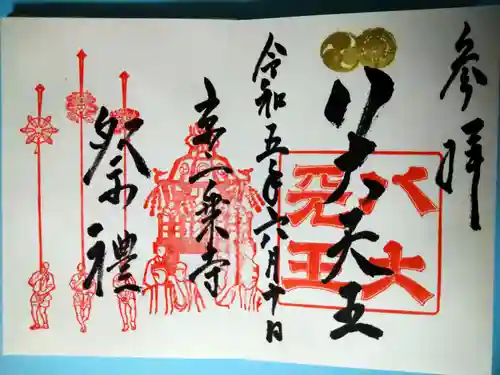 参拝
八大天王
八大天王
令和五年六月十日
京一乗寺
祭禮